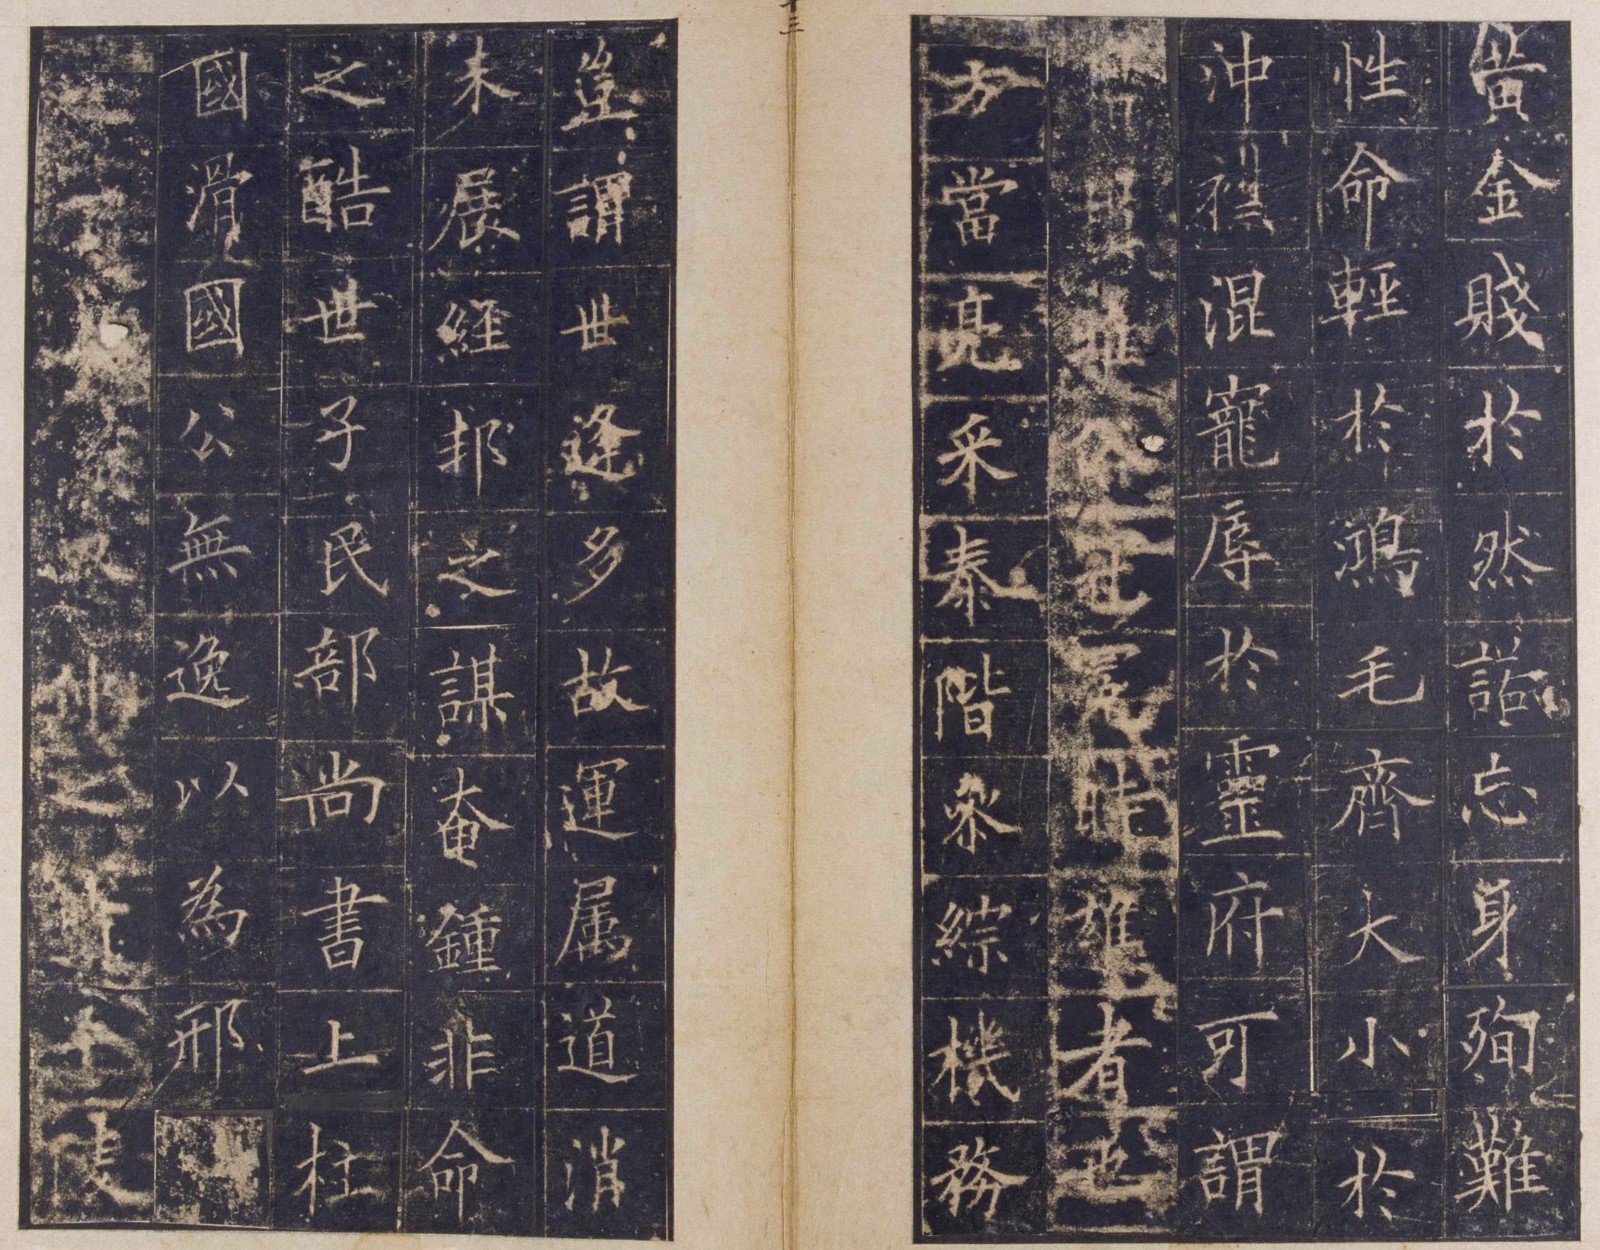 黃金賤於然諾忘身殉難
性命輕於鴻毛齊大小於
沖襟混寵辱於靈府可謂
冕時雄者也
方當亮采泰階參綜機務
豈謂世逢多故運属道消
未展經邦之謀奄鍾非命
之酷世子民部尚書上柱
國滑國公無逸以為邢
仲之墳平陵